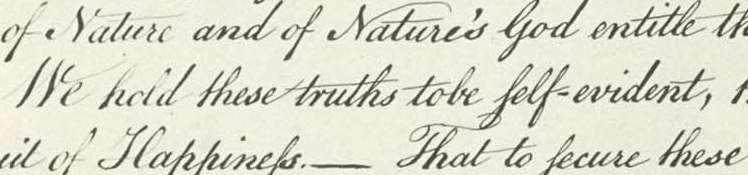 of Nature and of Nature's God entitle th
We hold these truths tobe ſelf-evident, t
uit of Happineſs.— That to ſecure these